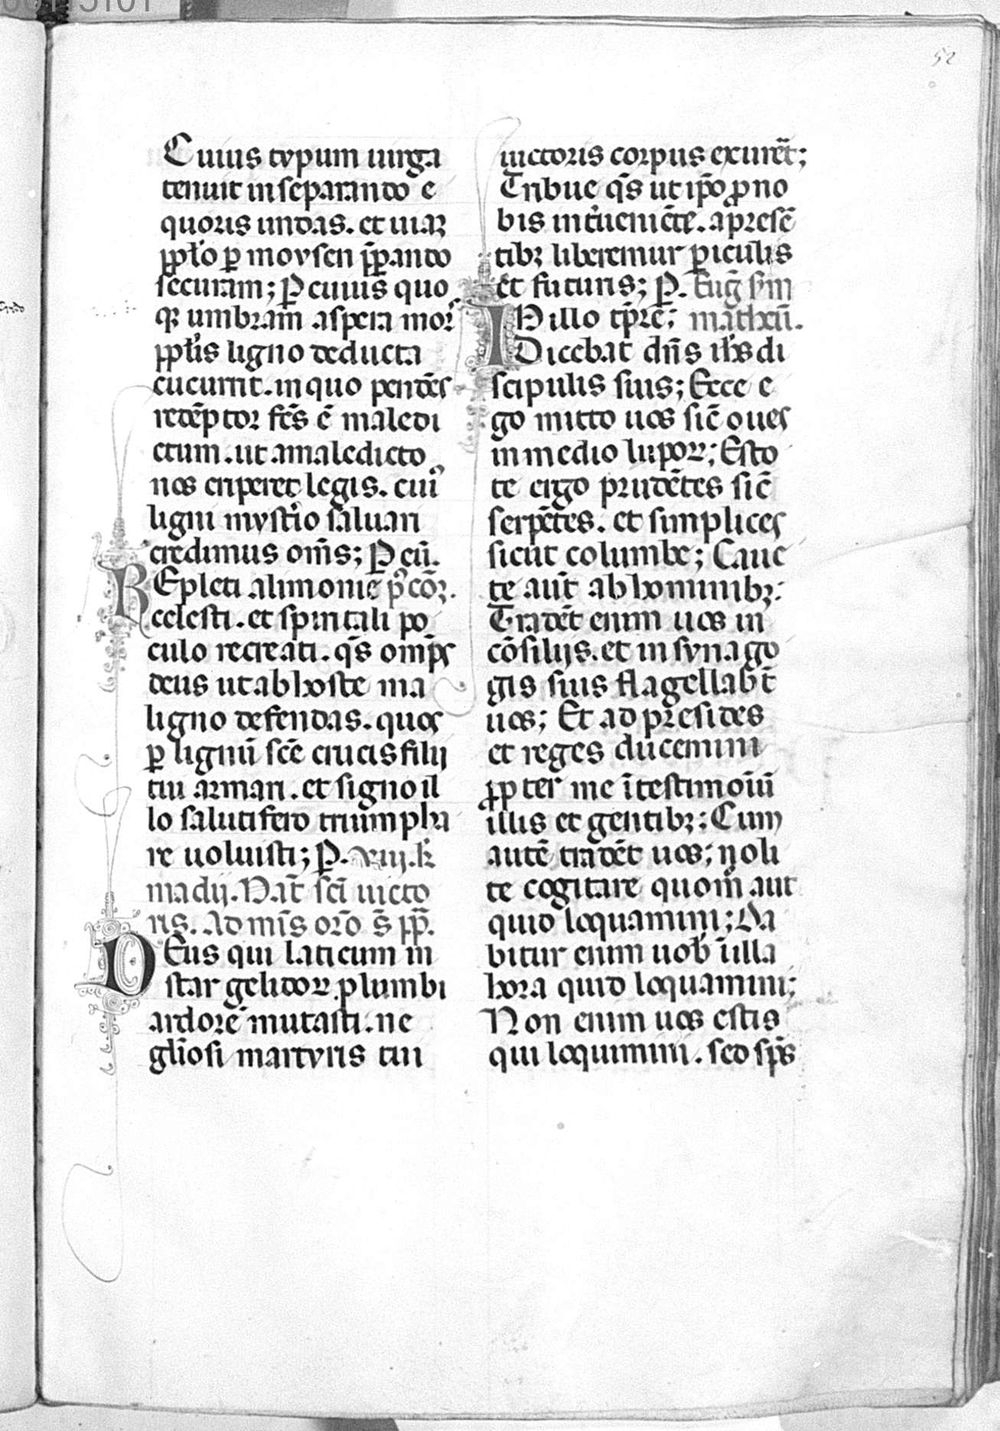 52
Cuius typum uirga
tenuit in separando e
quoris undas. et uiaꝝ
pplo p moysen ppando
securam; P cuius quo
qꝫ umbram aspera mor
pplis ligno deducta
cucurrit. in quo pendēs
redēptor fcs ē maledi
ctum. ut a maledicto
nos eriperet legis. cui
ligni mystio saluari
credimus oms; P cū.
REpleti alimonie pꝰcōꝫ.
celesti. et spiritali po
culo recreati. qs omps
deus ut ab hoste ma
ligno defendas. quos
p lignū scē crucis filij
tui armari. et signo il
lo salutifero triumpha
re uoluisti; P. viij. k
madij. Nat sci uicto
ris. Ad mis oro s pp.
DEus qui laticum in
star gelidoꝝ plumbi
ardorē mutasti. ne
gliosi martyris tui
uictoris corpus exuret;
Tribue qs ut ipo pro no
bis intueniēte. a presē
tibꝫ liberemur piculis
et futuris; P. Eug sm
IN illo tpre; matheū.
Dicebat dns ihs di
scipulis suis; Ecce e
go mitto uos sic oues
in medio lupoꝝ; Esto
te ergo prudētes sic
serpētes. et simplices
sicut columbe; Caue
te aut ab hominibꝫ.
Tradēt enim uos in
cōsilijs. et in synago
gis suis flagellabt
uos; Et ad presides
et reges ducemini
propter me ī testimoiū
illis et gentibꝫ; Cum
autē tradēt uos; noli
te cogitare quom aut
quid loquamini; Da
bitur enim uob ī illa
hora quid loquamini;
Non enim uos estis
qui loquimini. sed sps